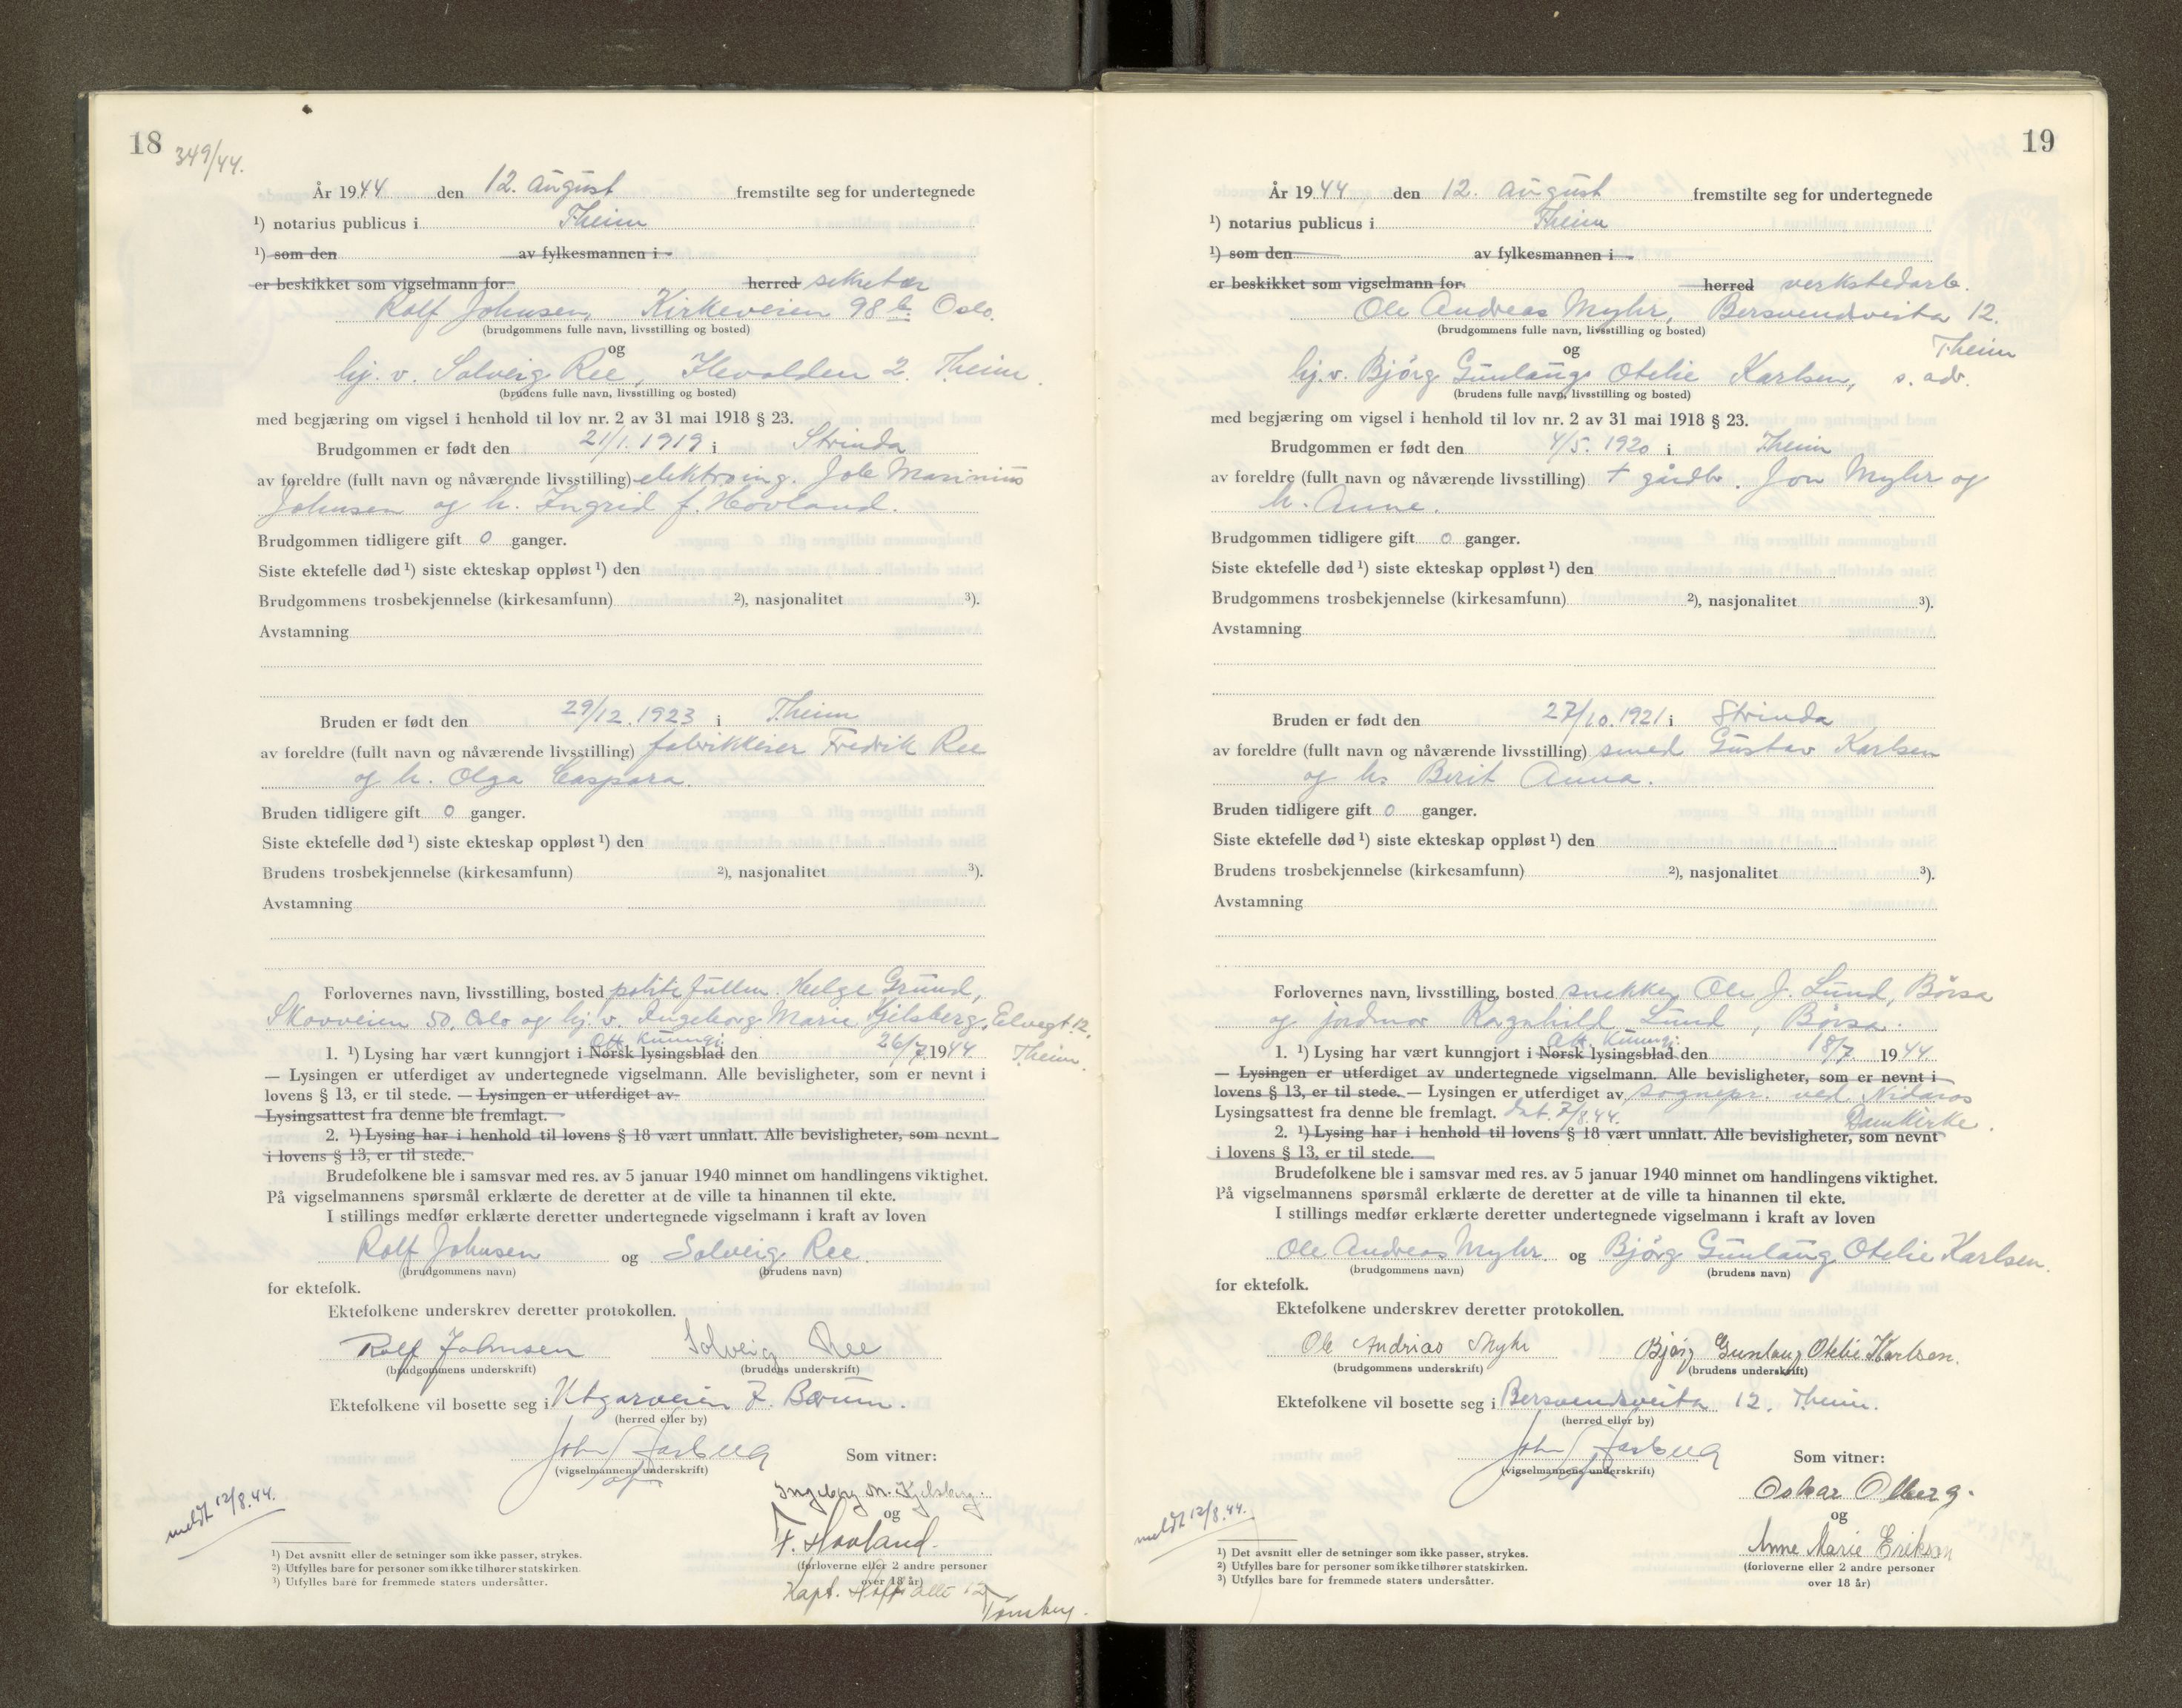 18
349/44.
År 1944 den 12. august fremstilte seg for undertegnede
¹) notarius publicus i Theim
¹) som den av fylkesmannen i
er beskikket som vigselmann for herred sekretær
Rolf Johnsen, Kirkeveien 98 b. Oslo.
(brudgommens fulle navn, livsstilling og bosted)
og
hj. v. Solveig Ree, Ilevolden 2. Theim.
(brudens fulle navn, livsstilling og bosted)
med begjæring om vigsel i henhold til lov nr. 2 av 31 mai 1918 § 23.
Brudgommen er født den 21/1. 1919 i Strinda
av foreldre (fullt navn og nåværende livsstilling) elektroing. Marinius
Johnsen og h. Ingrid f. Hovland.
Brudgommen tidligere gift 0 ganger.
Siste ektefelle død ¹) siste ekteskap oppløst ¹) den
Brudgommens trosbekjennelse (kirkesamfunn) ²), nasjonalitet ³).
Avstamning
Bruden er født den 29/12. 1923 i Theim
av foreldre (fullt navn og nåværende livsstilling) fabrikkeier Fredrik Ree
og h. Olga Caspara.
Bruden tidligere gift 0 ganger.
Siste ektefelle død ¹) siste ekteskap oppløst ¹) den
Brudens trosbekjennelse (kirkesamfunn) ²), nasjonalitet ³).
Avstamning
Forlovernes navn, livsstilling, bosted politifullm. Helge Grund,
Skovveien 50, Oslo og hj. v. Ingeborg Marie Kjelsberg, Elvegt 12,
Off. kunngj. Theim.
1. ¹) Lysing har vært kunngjort i Norsk lysingsblad den 26/7 1944
— Lysingen er utferdiget av undertegnede vigselmann. Alle bevisligheter, som er nevnt i
lovens § 13, er til stede. — Lysingen er utferdiget av
Lysingsattest fra denne ble fremlagt.
2. ¹) Lysing har i henhold til lovens § 18 vært unnlatt. Alle bevisligheter, som nevnt
i lovens § 13, er til stede.
Brudefolkene ble i samsvar med res. av 5 januar 1940 minnet om handlingens viktighet.
På vigselmannens spørsmål erklærte de deretter at de ville ta hinannen til ekte.
I stillings medfør erklærte deretter undertegnede vigselmann i kraft av loven
Rolf Johnsen og Solveig Ree.
(brudgommens navn) (brudens navn)
for ektefolk.
Ektefolkene underskrev deretter protokollen.
Rolf Johnsen Solveig Ree
(brudgommens underskrift) (brudens underskrift)
Ektefolkene vil bosette seg i Utgarveien 7. Bærum.
(herred eller by)
Som vitner:
(vigselmannens underskrift)
Ingeborg M. Kjelsberg.
og
F. Hovland.
meldt 12/8.44.
(forloverne eller 2 andre personer
over 18 år)
Kapt. Tønsberg.
¹) Det avsnitt eller de setninger som ikke passer, strykes.
²) Utfylles bare for personer som ikke tilhører statskirken.
³) Utfylles bare for fremmede staters undersåtter.
19
År 1944 den 12. august fremstilte seg for undertegnede
¹) notarius publicus i Theim
¹) som den av fylkesmannen i
er beskikket som vigselmann for herred verkstedarb.
Ole Andreas Myhr, Bersvendveita 12.
(brudgommens fulle navn, livsstilling og bosted) Theim
og
hj. v. Bjørg Gunlaug Otelie Karlsen, s. adr.
(brudens fulle navn, livsstilling og bosted)
med begjæring om vigsel i henhold til lov nr. 2 av 31 mai 1918 § 23.
Brudgommen er født den 4/5. 1920 i Theim
av foreldre (fullt navn og nåværende livsstilling) + gårdbr. Jon Myhr og
h. Anne.
Brudgommen tidligere gift 0 ganger.
Siste ektefelle død ¹) siste ekteskap oppløst ¹) den
Brudgommens trosbekjennelse (kirkesamfunn) ²), nasjonalitet ³).
Avstamning
Bruden er født den 27/10. 1921 i Strinda
av foreldre (fullt navn og nåværende livsstilling) smed Gustav Karlsen
og hs Berit Anna.
Bruden tidligere gift 0 ganger.
Siste ektefelle død ¹) siste ekteskap oppløst ¹) den
Brudens trosbekjennelse (kirkesamfunn) ²), nasjonalitet ³).
Avstamning
Forlovernes navn, livsstilling, bosted snekker Ole J. Lund, Børsa
og jordmor Ragnhild Lund, Børsa.
Off. kunngj.
1. ¹) Lysing har vært kunngjort i Norsk lysingsblad den 18/7 1944
— Lysingen er utferdiget av undertegnede vigselmann. Alle bevisligheter, som er nevnt i
lovens § 13, er til stede. — Lysingen er utferdiget av sognepr. ved Nidaros
Lysingsattest fra denne ble fremlagt. dat. 7/8.44. Domkirke.
2. ¹) Lysing har i henhold til lovens § 18 vært unnlatt. Alle bevisligheter, som nevnt
i lovens § 13, er til stede.
Brudefolkene ble i samsvar med res. av 5 januar 1940 minnet om handlingens viktighet.
På vigselmannens spørsmål erklærte de deretter at de ville ta hinannen til ekte.
I stillings medfør erklærte deretter undertegnede vigselmann i kraft av loven
Ole Andreas Myhr og Bjørg Gunlaug Otelie Karlsen.
(brudgommens navn) (brudens navn)
for ektefolk.
Ektefolkene underskrev deretter protokollen.
Ole Andrias Myhr Bjørg Gunlaug Otelie Karlsen.
(brudgommens underskrift) (brudens underskrift)
Ektefolkene vil bosette seg i Bersvendsveita 12, Theim.
(herred eller by)
Som vitner:
(vigselmannens underskrift)
Oskar Olberg.
og
meldt 12/8.44.
Anne Marie Erikson
(forloverne eller 2 andre personer
over 18 år)
¹) Det avsnitt eller de setninger som ikke passer, strykes.
²) Utfylles bare for personer som ikke tilhører statskirken.
³) Utfylles bare for fremmede staters undersåtter.